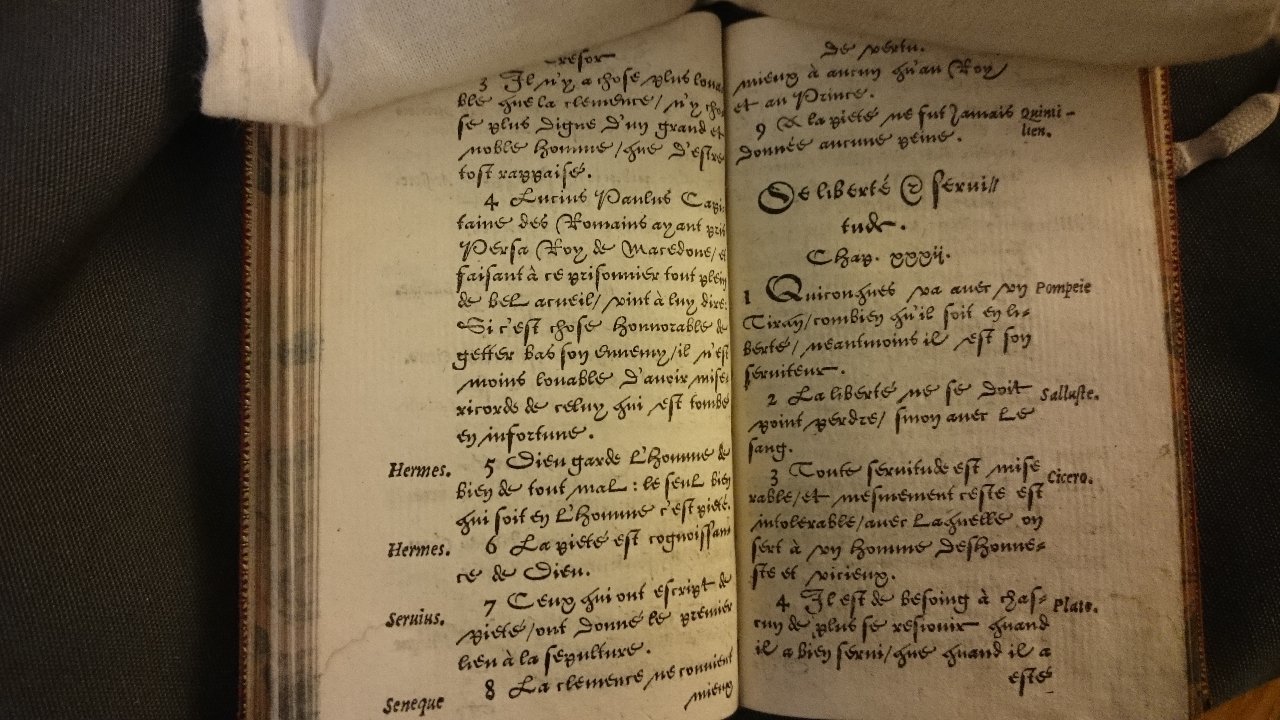 Tresor
3 Il n'y a chose plus loua-
ble que la clemence/ n'y cho-
se plus digne d'un grand et
noble homme/que d'estre
tost rappaisé.
4 Lucius Paulus Capi-
taine des Romains ayant pris
Persa Roy de Macedone/ et
faisant à ce prisonnier tout plein
de bel acueil/ vint à luy dire:
Si c'est chose honnorable de
getter bas son ennemy/il n'est
moins louable d'avoir mise-
ricorde de celuy qui est tombé
en infortune.
Hermes. 5 Dieu garde l'homme de
bien de tout mal: le seul bien
qui soit en l'homme c'est pieté.
Hermes. 6 La pieté est cognoissan-
ce de Dieu.
Seruius. 7 Ceux qui ont escript de
pieté/ont donné le premier
lieu à la sepulture.
Seneque 8 La clemence ne conuient
mieux
de vertu.
mieux à aucun qu'au Roy
et au Prince.
9 A la pieté ne fut jamais Quinti-
donnée aucune peine. lien.
De liberté & serui-
tude.
Chap. xxxij.
1 Quiconques va auec vn Pompeie
Tiran/combien qu'il soit en li-
berté/ neantmoins il est son
seruiteur.
2 La liberté ne se doit Salluste.
point perdre/ sinon auec le
sang.
3 Toute seruitude est mise Cicero.
rable/et mesmement ceste est
intolerable/auec laquelle on
sert à vn homme deshonne-
ste et vicieux.
4 Il est de besoing à chas- Plato.
cun de plus se resiouir quand
il a bien serui/que quand il a
esté